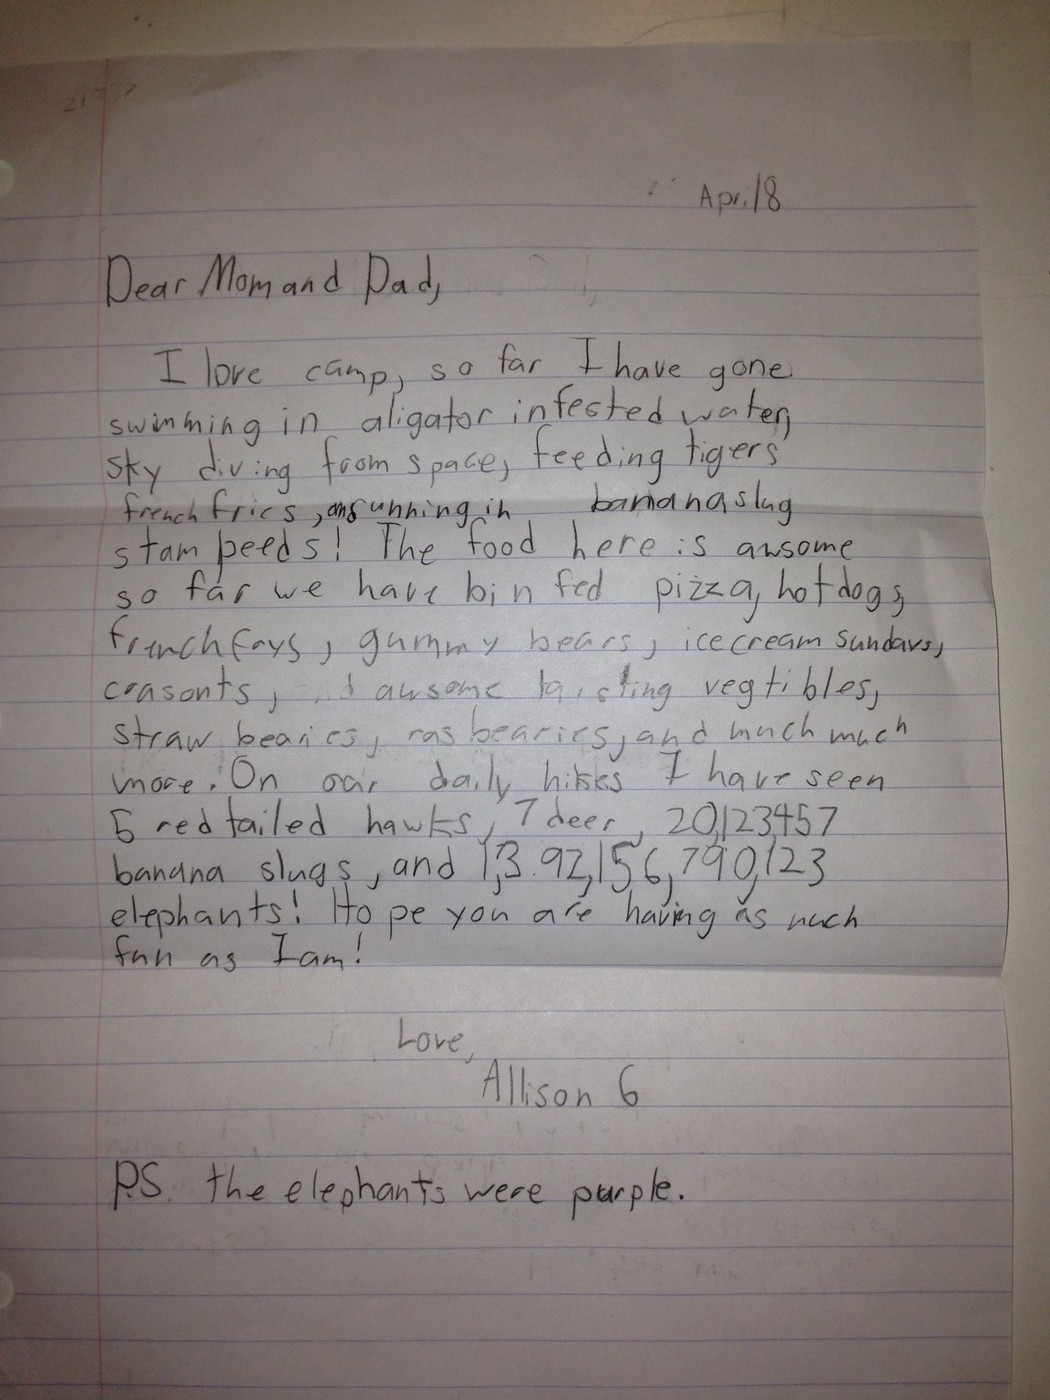 April 8
Dear Mom and Dad,
I love camp, so far I have gone
swimming in aligator infested water,
sky diving from space, feeding tigers
french fries, and running in bananaslug
stampeeds! The food here is awsome
so far we have bin fed pizza, hotdogs,
french frys, gummy bears, icecream sundays,
crasonts, awsome tasting vegtibles,
straw bearies, rasbearies, and much much
more. On our daily hikes I have seen
5 red tailed hawks, 7 deer, 20,123,457
banana slugs, and 1,3.92,156,790,123
elephants! Hope you are having as much
fun as I am!
Love,
Allison G
P.S. the elephants were purple.